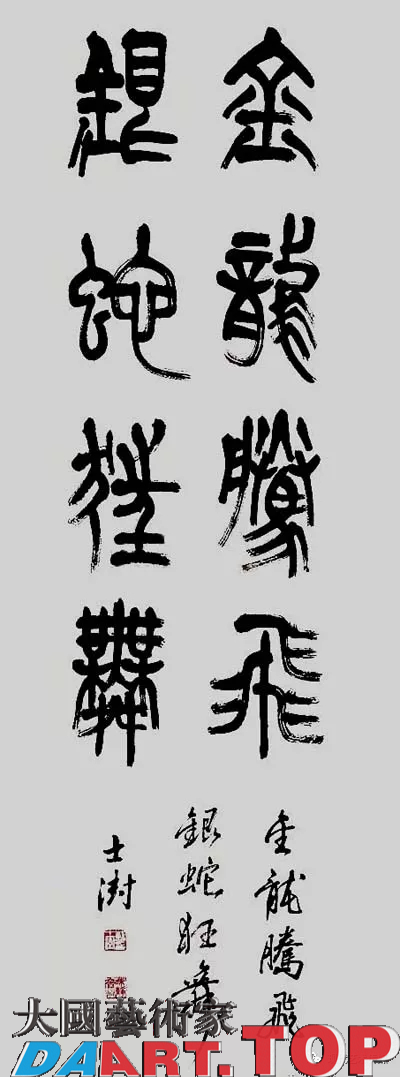 金龍騰飛
銀蛇狂舞
金龍騰飛
銀蛇狂舞
士澍
大國藝術家
DAART.TOP